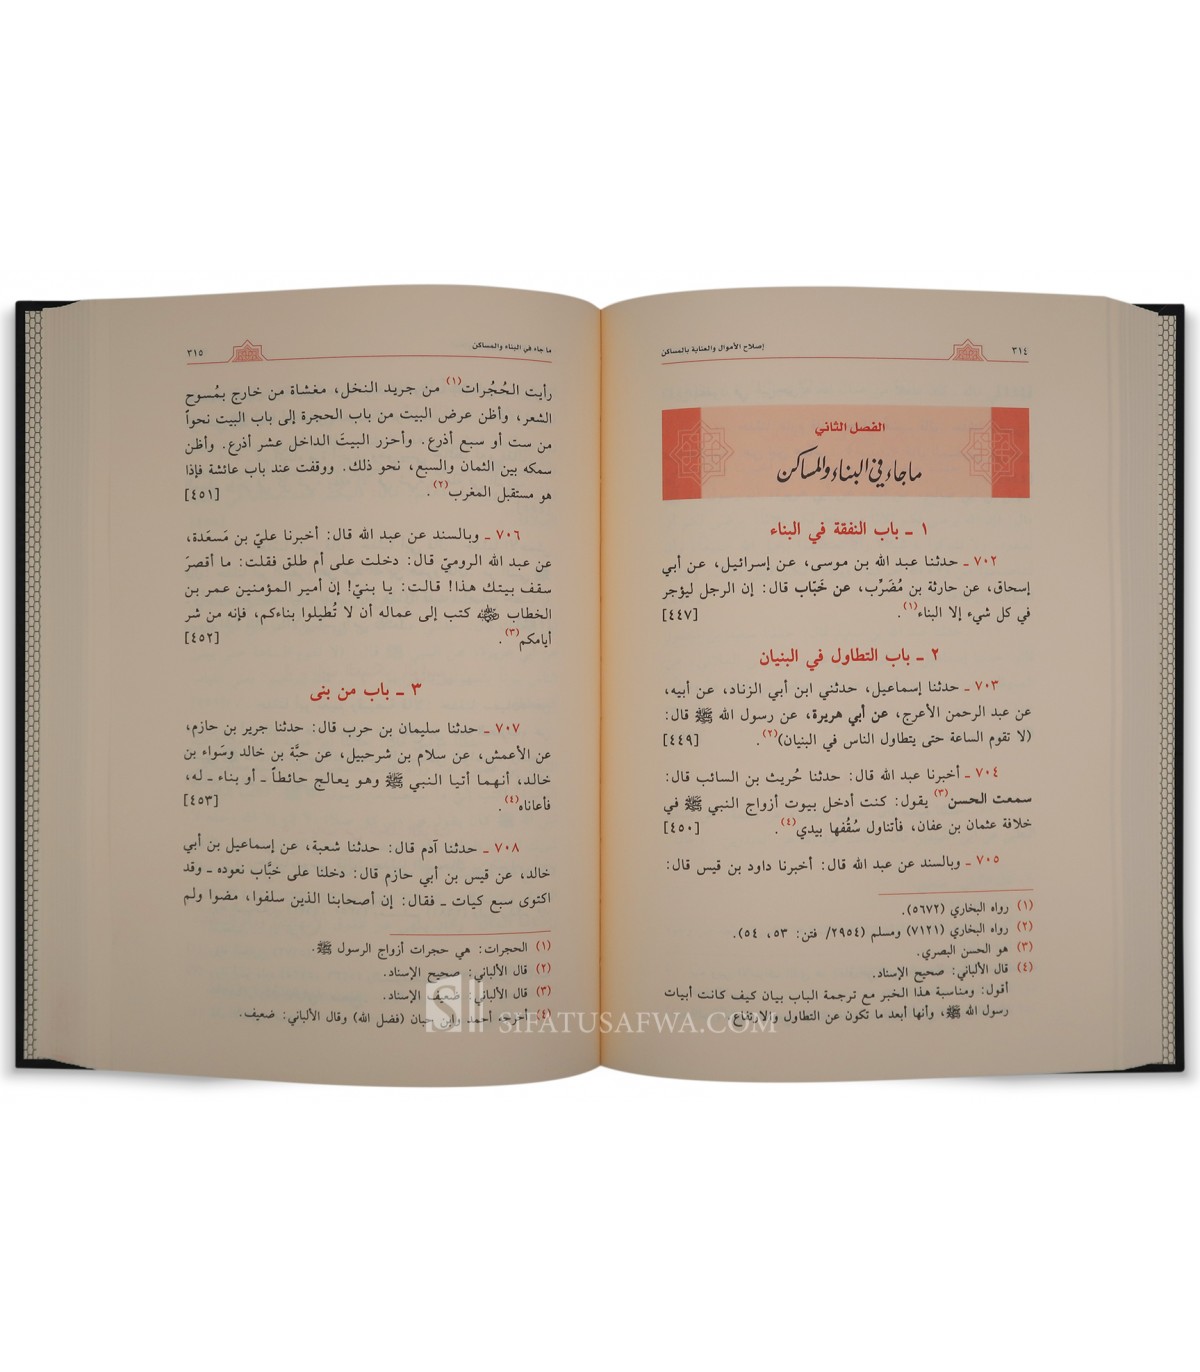 ٣١٤
إصلاح الأموال والعناية بالمساكن
الفصل الثاني
ما جاء في البناء والمساكن
١ ـ باب النفقة في البناء
٧٠٢ ـ حدثنا عبد الله بن موسى، عن إسرائيل، عن أبي
إسحاق، عن حارثة بن مُضَرِّب، عن خَبّاب قال: إن الرجل ليؤجر
في كل شيء إلا البناء(١). [٤٤٧]
٢ ـ باب التطاول في البنيان
٧٠٣ ـ حدثنا إسماعيل، حدثني ابن أبي الزناد، عن أبيه،
عن عبد الرحمن الأعرج، عن أبي هريرة، عن رسول الله ﷺ قال:
(لا تقوم الساعة حتى يتطاول الناس في البنيان)(٢). [٤٤٩]
٧٠٤ ـ أخبرنا عبد الله قال: حدثنا حُريث بن السائب قال:
سمعت الحسن(٣) يقول: كنت أدخل بيوت أزواج النبي ﷺ في
خلافة عثمان بن عفان، فأتناول سُقُفها بيدي(٤). [٤٥٠]
٧٠٥ ـ وبالسند عن عبد الله قال: أخبرنا داود بن قيس قال:
(١) رواه البخاري (٥٦٧٢).
(٢) رواه البخاري (٧١٢١) ومسلم (٢٩٥٤/ فتن: ٥٣، ٥٤).
(٣) هو الحسن البصري.
(٤) قال الألباني: صحيح الإسناد.
أقول: ومناسبة هذا الخبر مع ترجمة الباب بيان كيف كانت أبيات
رسول الله ﷺ، وأنها أبعد ما تكون عن التطاول والارتفاع.
ما جاء في البناء والمساكن
٣١٥
رأيت الحُجُرات(١) من جريد النخل، مغشاة من خارج بمُسوح
الشعر، وأظن عرض البيت من باب الحجرة إلى باب البيت نحواً
من ست أو سبع أذرع. وأحزر البيتَ الداخل عشر أذرع. وأظن
سمكه بين الثمان والسبع، نحو ذلك. ووقفت عند باب عائشة فإذا
هو مستقبل المغرب(٢). [٤٥١]
٧٠٦ ـ وبالسند عن عبد الله قال: أخبرنا عليّ بن مَسعَدة،
عن عبد الله الروميّ قال: دخلت على أم طلق فقلت: ما أقصرَ
سقف بيتك هذا! قالت: يا بنيّ! إن أمير المؤمنين عمر بن
الخطاب رضي الله عنه كتب إلى عماله أن لا تُطيلوا بناءكم، فإنه من شر
أيامكم(٣). [٤٥٢]
٣ ـ باب من بنى
٧٠٧ ـ حدثنا سليمان بن حرب قال: حدثنا جرير بن حازم،
عن الأعمش، عن سلام بن شرحبيل، عن حبَّة بن خالد وسَواء بن
خالد، أنهما أتيا النبي ﷺ وهو يعالج حائطاً ـ أو بناء ـ له،
فأعاناه(٤). [٤٥٣]
٧٠٨ ـ حدثنا آدم قال: حدثنا شعبة، عن إسماعيل بن أبي
خالد، عن قيس بن أبي حازم قال: دخلنا على خبَّاب نعوده ـ وقد
اكتوى سبع كيات ـ فقال: إن أصحابنا الذين سلفوا، مضوا ولم
(١) الحجرات: هي حجرات أزواج الرسول ﷺ.
(٢) قال الألباني: صحيح الإسناد.
(٣) قال الألباني: ضعيف الإسناد.
(٤) أخرجه أحمد وابن حبان (فضل الله) وقال الألباني: ضعيف.
SIFATUSAFWA.COM